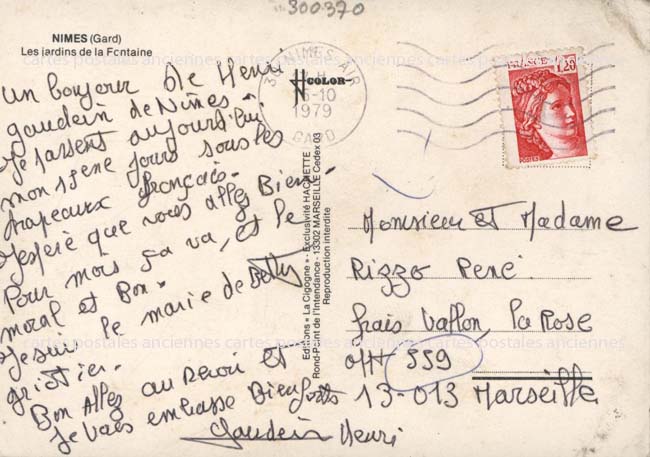 300370
NIMES (Gard)
Les jardins de la Fontaine
cartes postales anciennes cartes postales anciennes cartes postales anciennes
COLOR
NIMES
-10
1979
GARD
FRANCE 1,20
POSTES
un bonjour De Henri
gaudein de Nîmes.
Je passent aujourdhui
mon jours sous les
Drapeaux français.
J'espeie que vous allez Bien.
Pour mois ça va, et le
moral et Bon.
Je sui le marie de Betty
gristier.
Bon Allez au Revoir et
Je vous embasse Bienfort
Gaudein Henri
Editions « La Cigogne » - Exclusivité HACHETTE
Rond-Point de l'Intendance - 13302 MARSEILLE Cedex 03
Reproduction interdite
Monsieur et Madame
Rizzo René
frais Vallon, La Rose
APT 559
13-013 Marseille
cartes postales anciennes cartes postales anciennes cartes postales anciennes